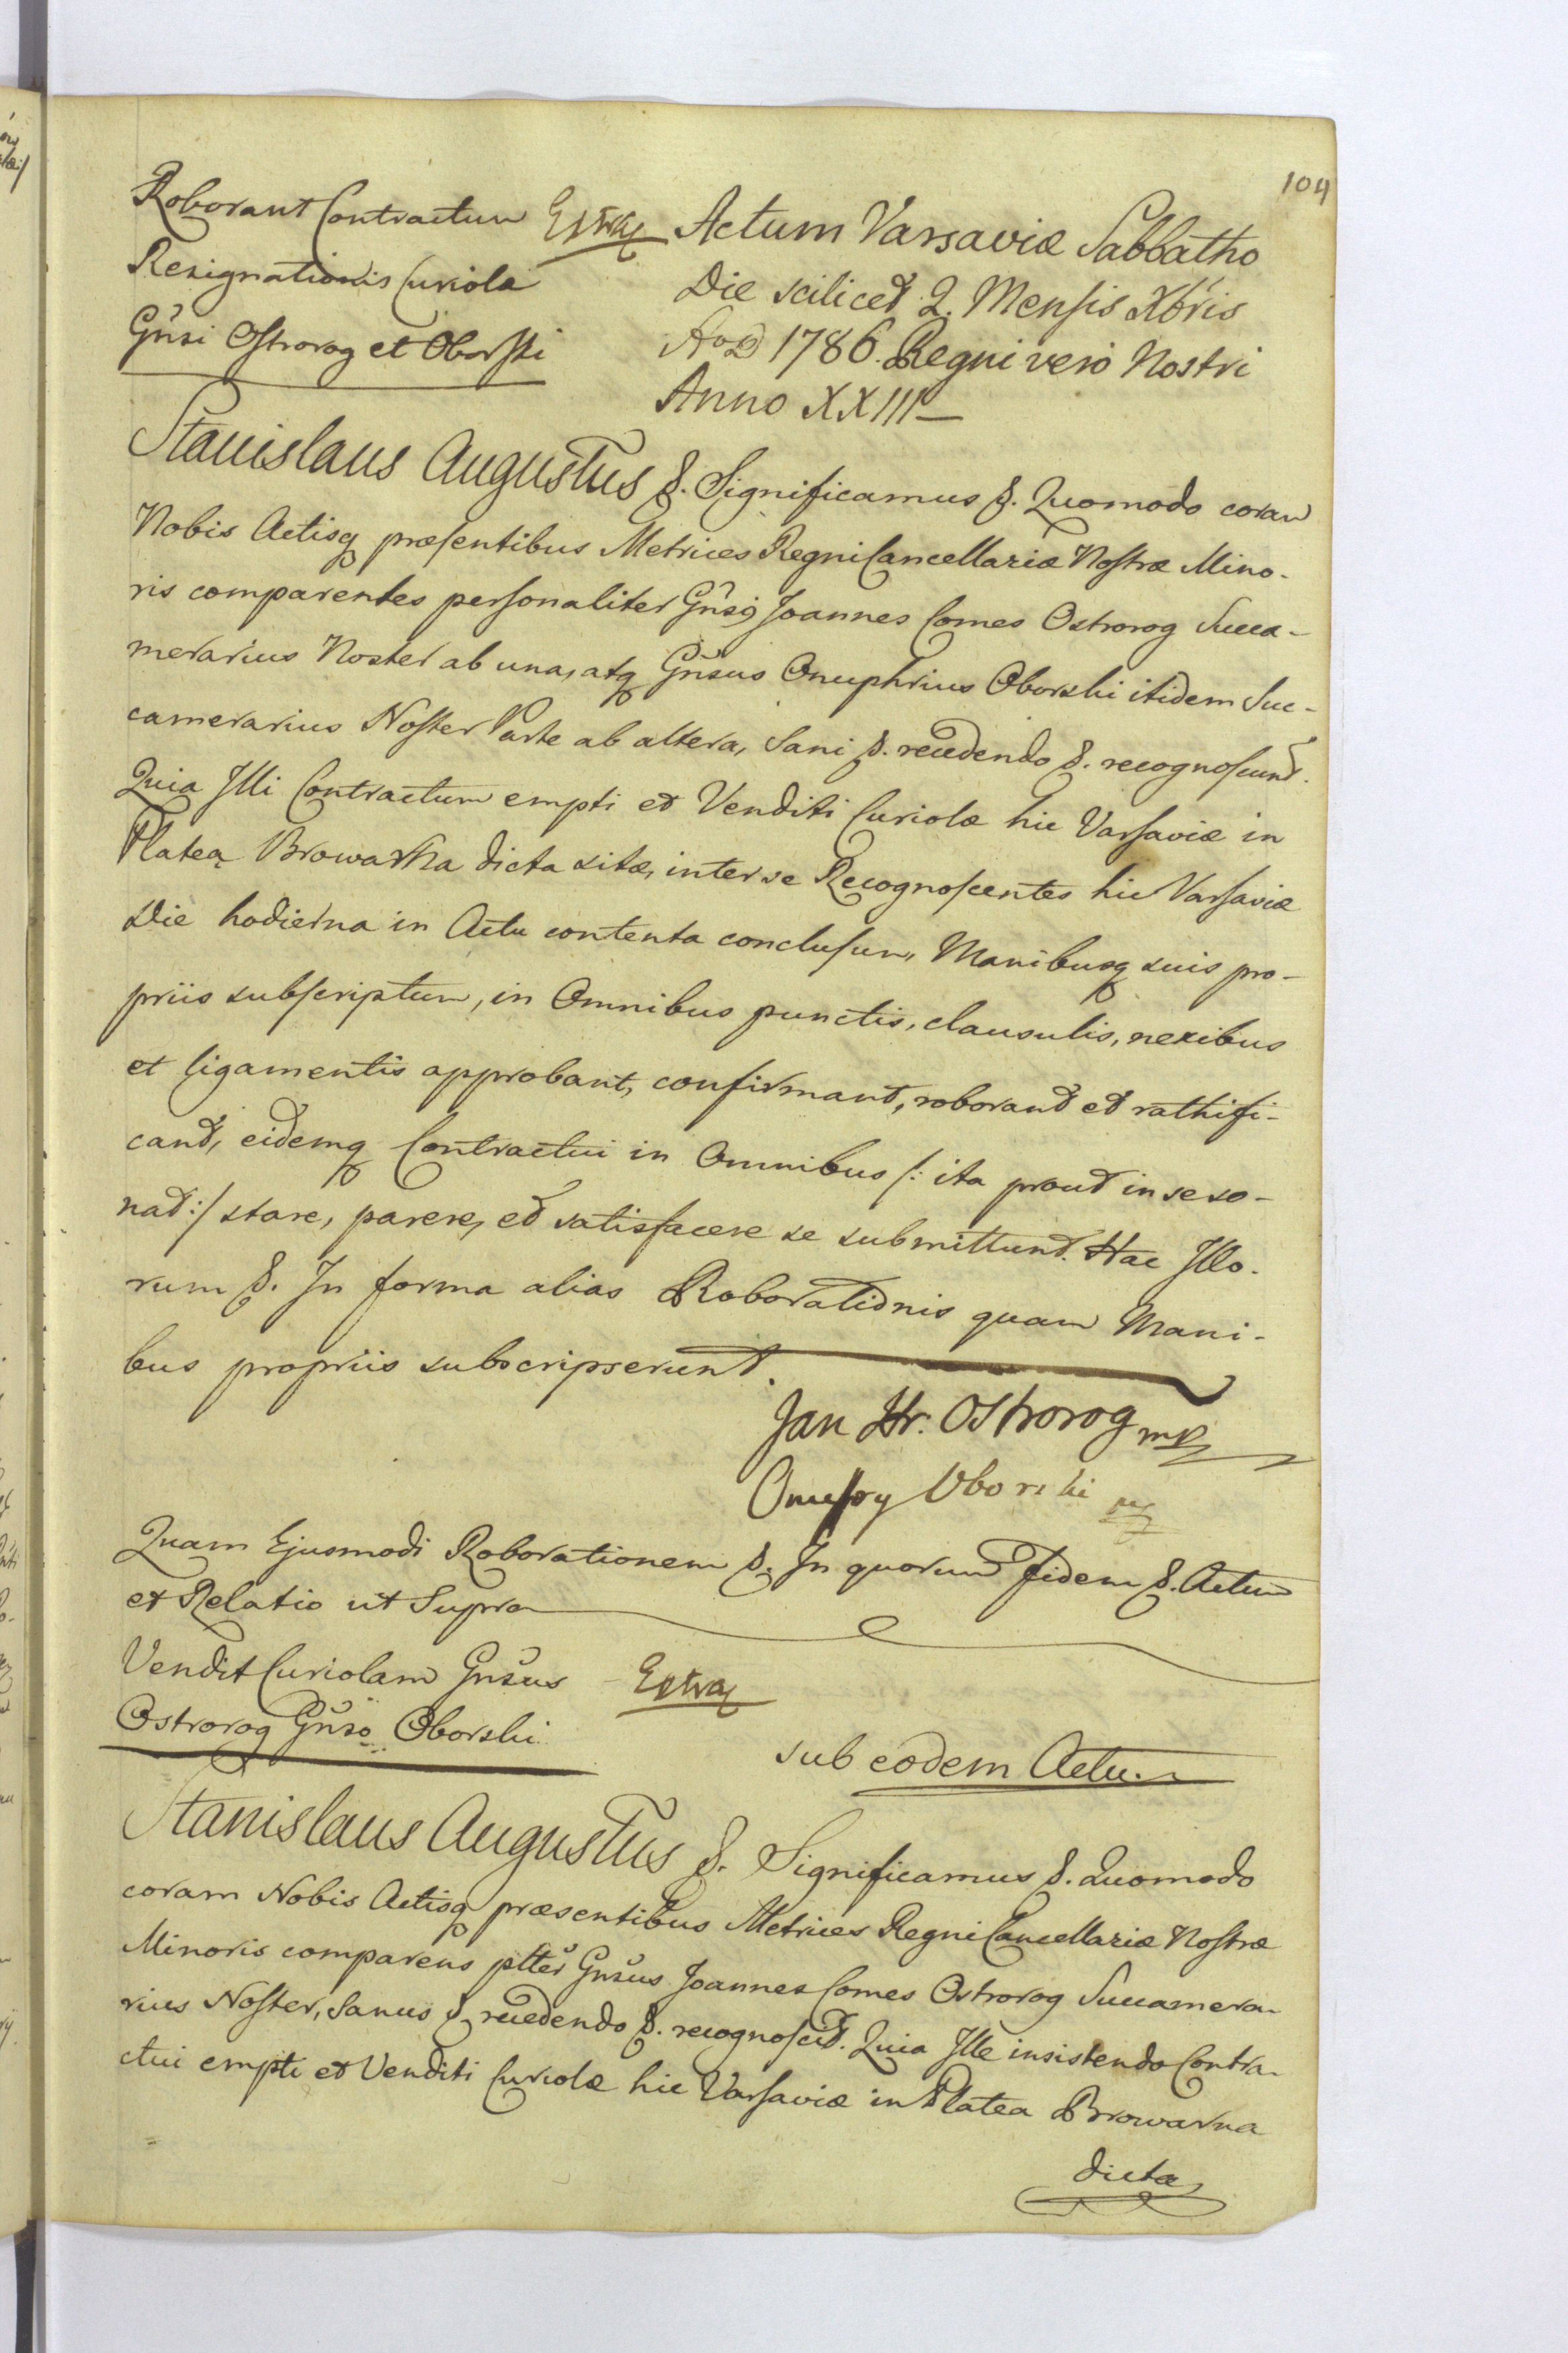 104
Roborant Contractum
Resignationis Curiola
Gn̄si Ostrorog et Oborski
Extrax
Actum Varsaviæ Sabbatho
Die scilicet 2. Mensis Xbris
AoD 1786. Regni vero Nostri
Anno XXIII
Stanislaus Augustus &. Significamus &. Quomodo coram
Nobis Actisq præsentibus Metrices Regni Cancellariæ Nostræ Mino-
ris comparentes personaliter Gn̄si Joannes Comes Ostrorog Succa-
merarius Noster ab una, atq Gn̄sus Onuphrius Oborski itidem Suc-
camerarius Noster Parte ab altera, Sani &. recedendo &. recognoscunt.
Quia Illi Contractum empti et Venditi Curiolæ hic Varsaviæ in
Platea Browarna dicta sitæ, inter se Recognoscentes hic Varsaviæ
Die hodierna in Actu contenta conclusum, Manibusq suis pro-
priis subscriptum, in Omnibus punctis, clausulis, nexibus
et ligamentis approbant, confirmant, roborant et rathifi-
cant, eidemq Contractui in Omnibus /: ita prout in se so-
nat :/ stare, parere, et satisfacere se submittunt. Hac Illo-
rum &. In forma alias Roborationis quam Mani-
bus propriis subscripserunt.
Jan Hr. Ostrorog mp
Onufry Oborski mp
Quam Ejusmodi Roborationem &. In quorum fidem &. Actum
et Relatio ut Supra
Vendit Curiolam Gn̄sus
Ostrorog Gn̄so Oborski
Extrax
sub eodem Actu
Stanislaus Augustus &. Significamus &. Quomodo
coram Nobis Actisq præsentibus Metrices Regni Cancellariæ Nostræ
Minoris comparens pltter Gn̄sus Joannes Comes Ostrorog Succamera-
rius Noster, Sanus &. recedendo &. recognoscit. Quia Ille insistendo Contra-
ctui empti et Venditi Curiolæ hic Varsaviæ in Platea Browarna
dicta